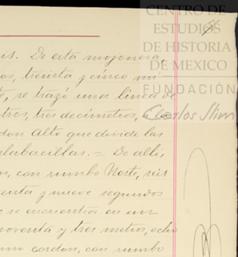 CENTRO DE
ESTUDIOS
DE HISTORIA
DE MEXICO
FUNDACIÓN
Carlos Slim
De esta mojonera
treinta y cinco mi
se trazó una línea de
tros, tres decímetros, á
don Alto que divide las
alabacillas. = De allí,
con rumbo Norte, seis
enta y nueve segundos
se encuentra en un
noventa y tres metros, ocho
mo cordon, con rumbo